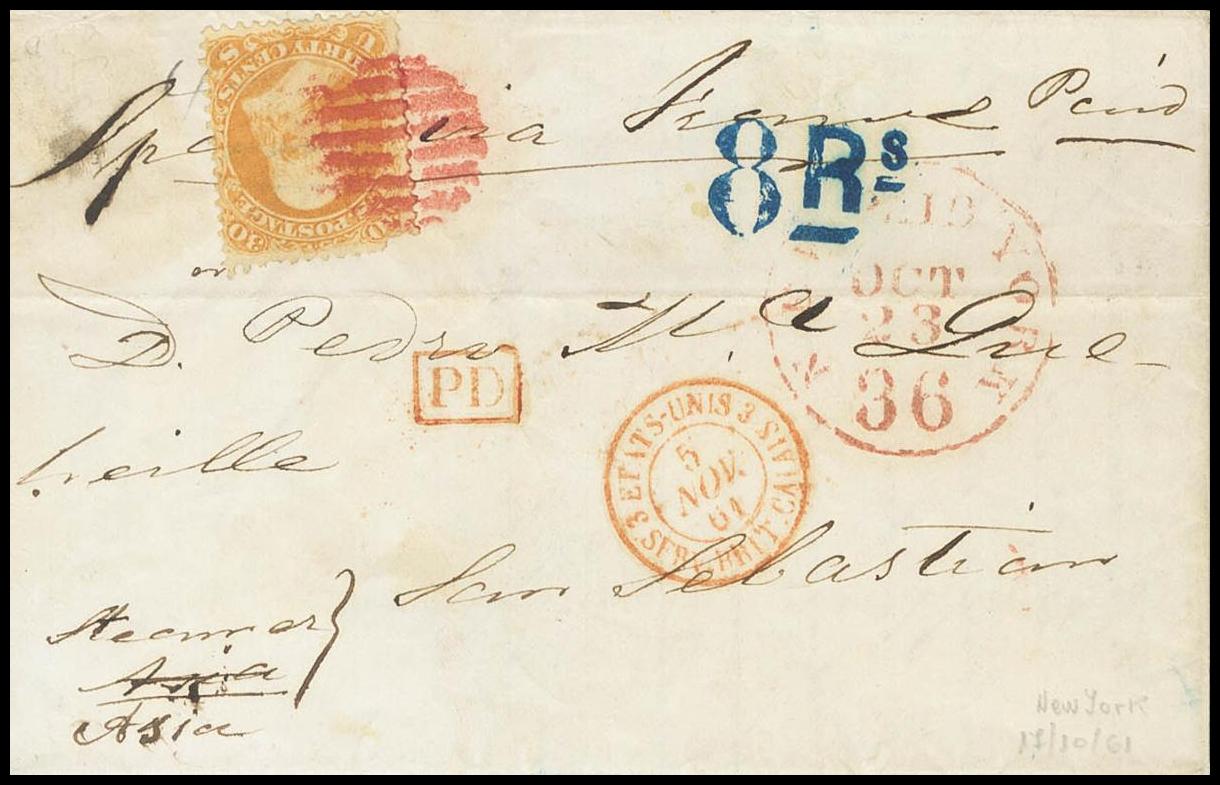 Paid
8 Rs
PAID
OCT
23
36
NEW YORK
U S
THIRTY CENTS
POSTAGE
30
or
D. Pedro M.a Que-
heille
PD
3 ETATS-UNIS 3 SERV. BRIT. CALAIS
5
NOV.
61
San Sebastian
Steamer
Asia
Asia
New York
17/10/61